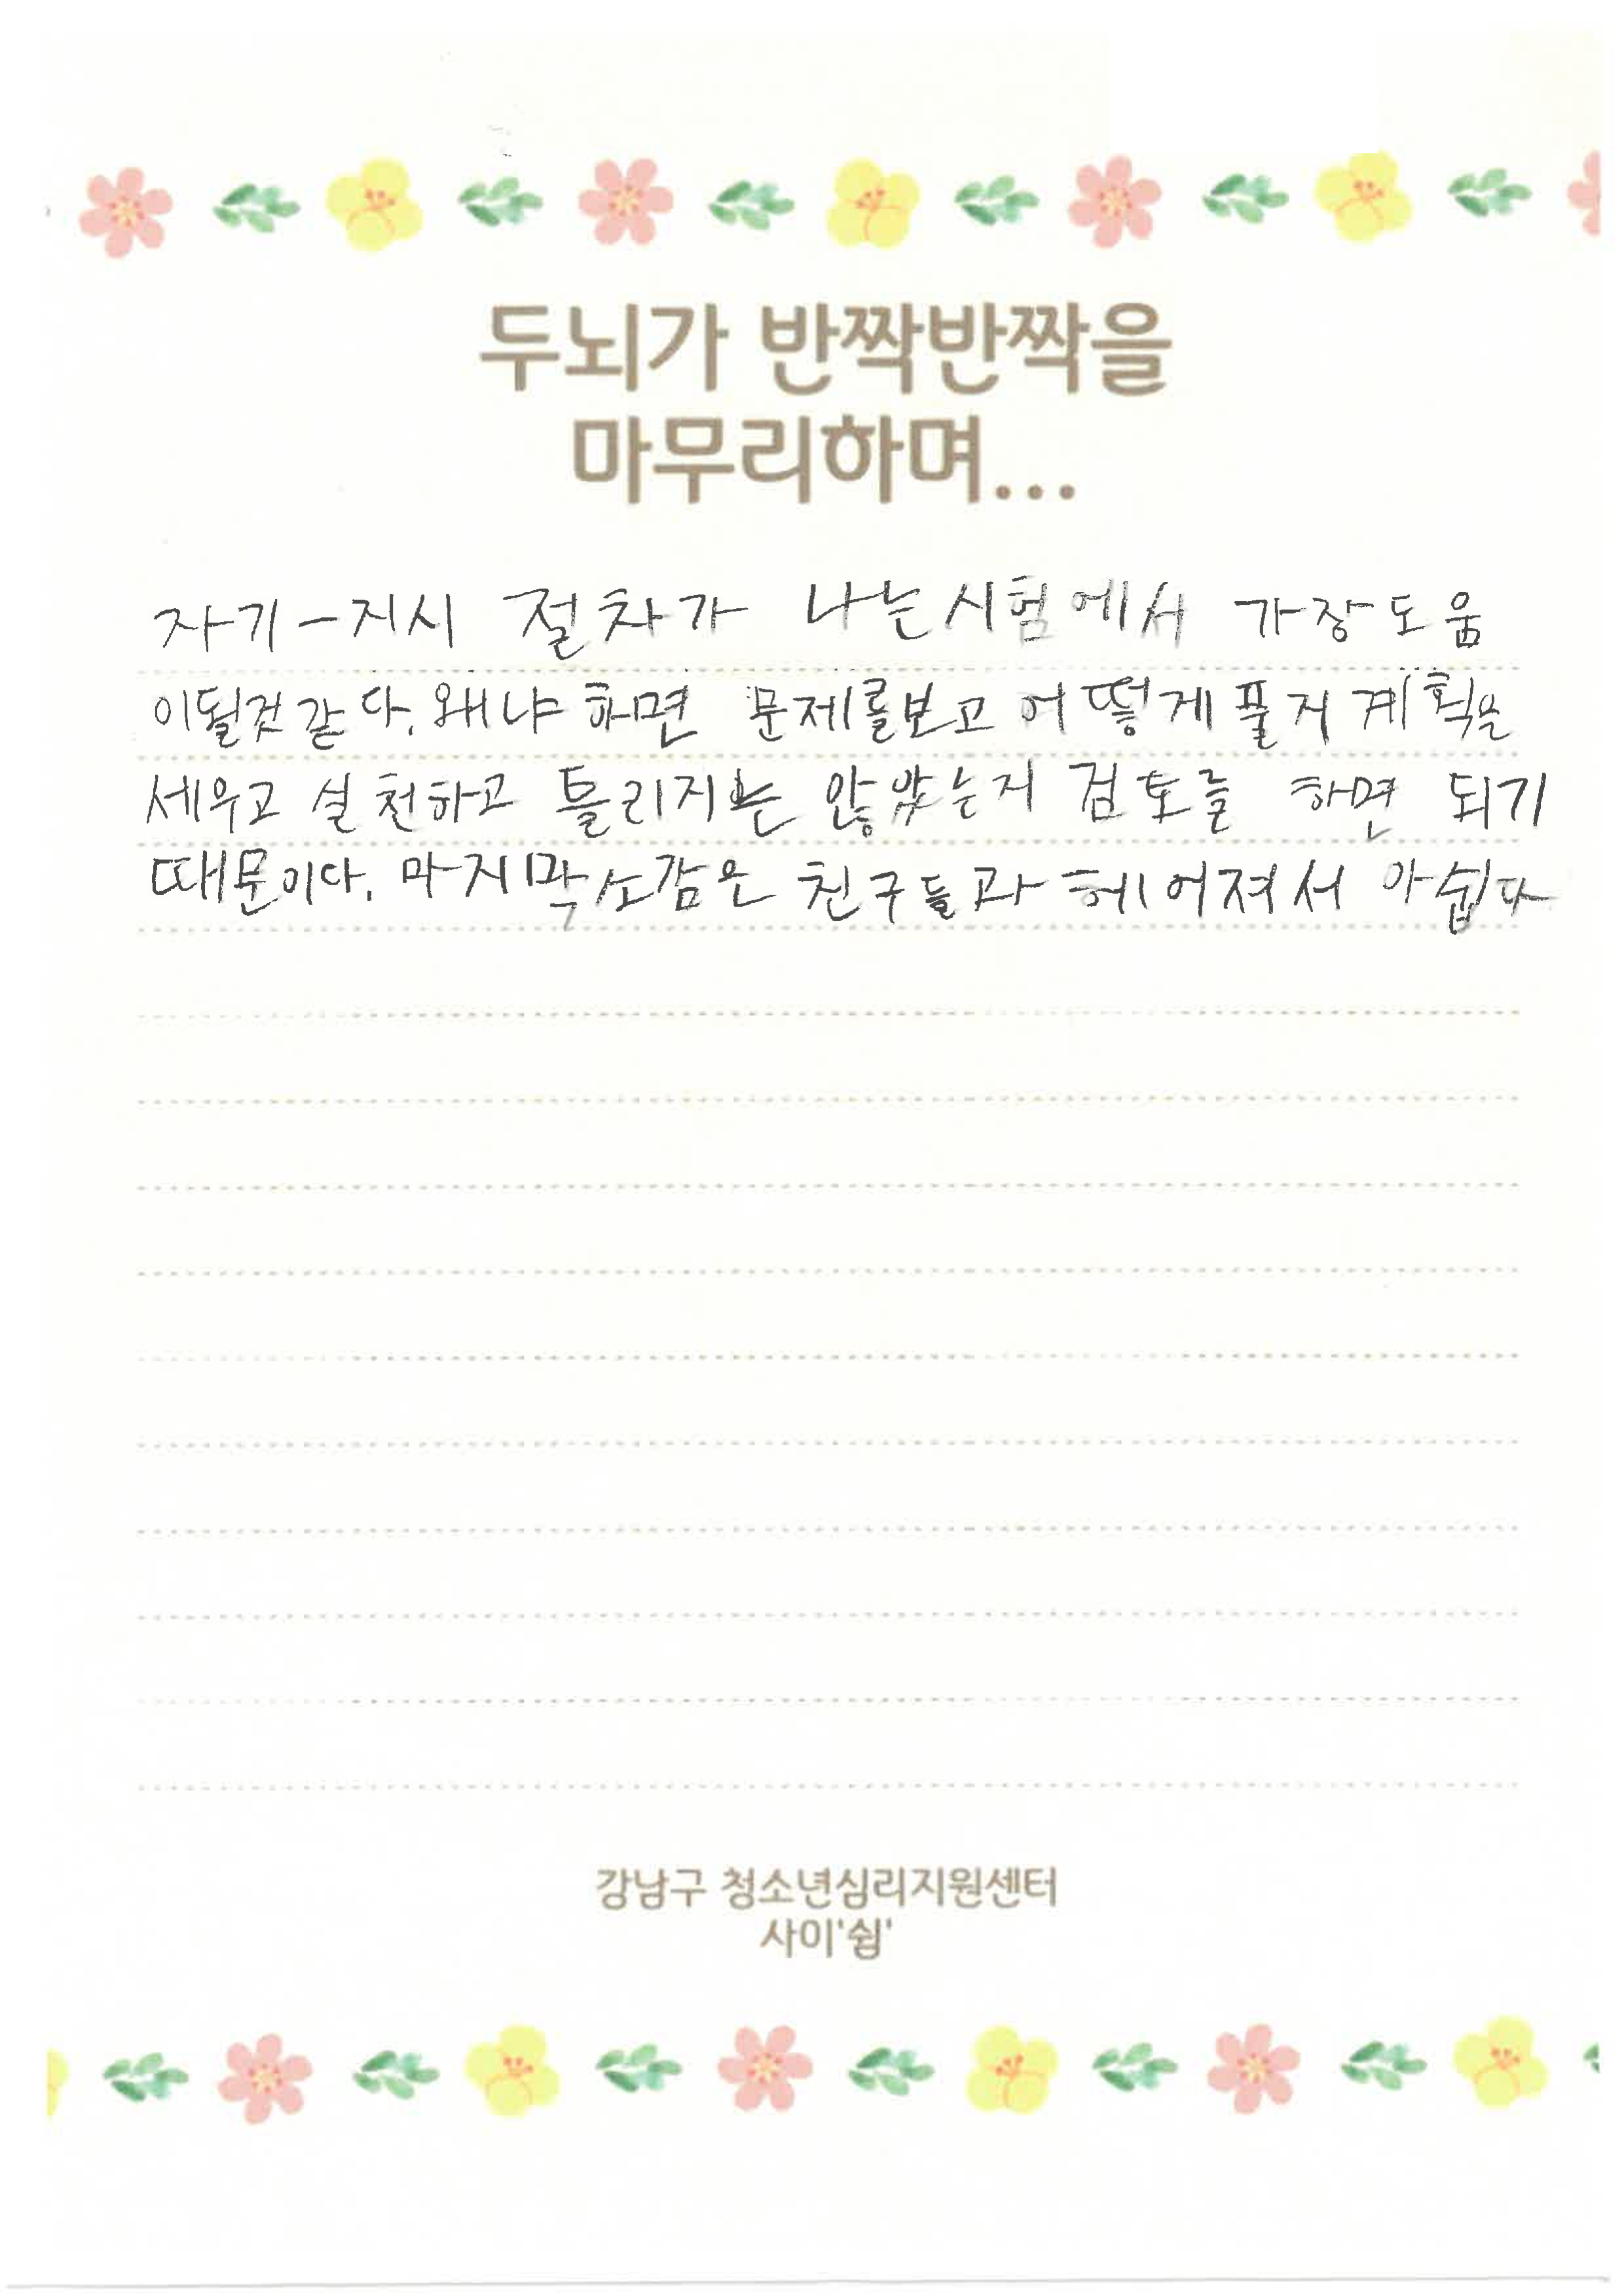 두뇌가 반짝반짝을
마무리하며...
자기-지시 절차가 나는 시험에서 가장 도움
이될것같다. 왜냐하면 문제를보고 어떻게 풀지 계획을
세우고 실천하고 틀리지는 않았는지 검토를 하면 되기
때문이다. 마지막소감은 친구들과 헤어져서 아쉽다
강남구 청소년심리지원센터
사이'쉼'